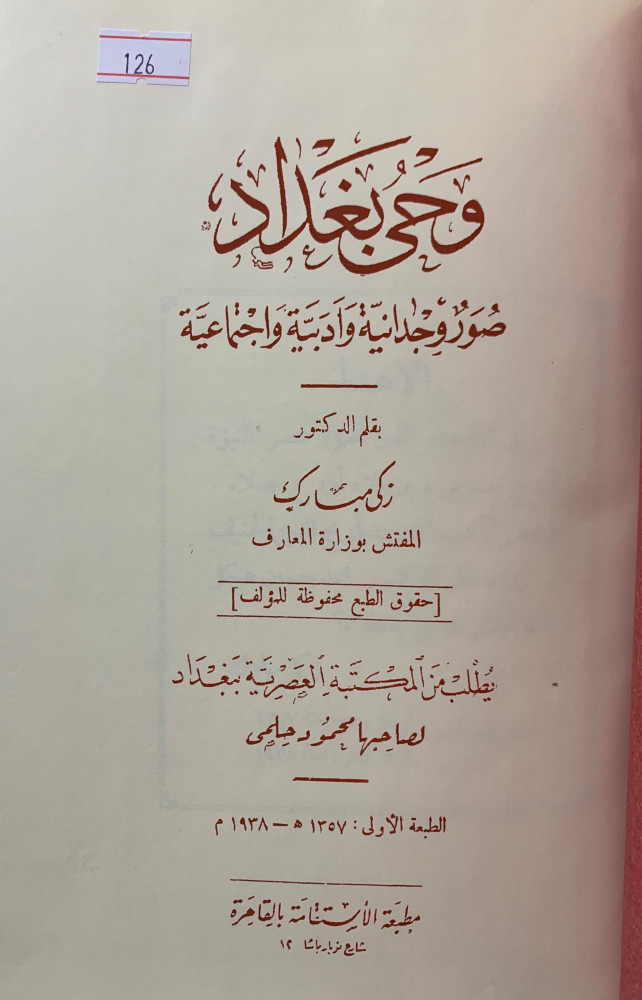 126
وَحْىُ بَغْدَاد
صُوَرٌ وِجْدَانيَّة وَأَدَبيَّة وَاجْتِمَاعيَّة
بقلم الدكتور
زكى مبارك
المفتش بوزارة المعارف
[حقوق الطبع محفوظة للمؤلف]
يُطْلَبُ مِنَ المَكْتَبَةِ العَصْرِيَّةِ بِبَغْدَاد
لصاحبها محمُود حلمى
الطبعة الأولى: ١٣٥٧ ه — ١٩٣٨ م
مطبعَة الأسْتقامَة بالقاهِرَة
شارع نوبار باشا ١٢